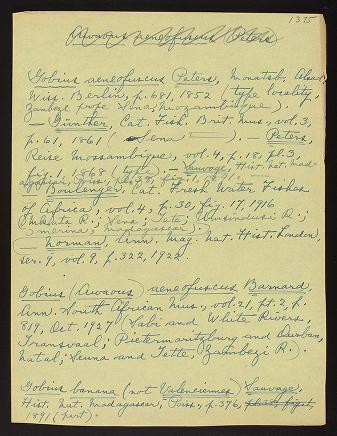 1375
Awaous aeneofuscus Peters
Gobius aeneofuscus Peters, Monatsb. Akad.
Wiss. Berlin, p. 681, 1852 (type locality,
Zambezi prope Sena, Mozambique).
— Günther, Cat. Fish. Brit. Mus., vol. 3,
p. 61, 1861 (Sena). — Peters,
Reise Mossambique, vol. 4, p. 18, pl. 3,
fig. 1, 1868 (type). — Sauvage, Hist. nat. Mad-
agascar, Poiss., fig. 1, 1891. —
Boulenger, Cat. Fresh Water Fishes
of Africa, vol. 4, p. 30, fig. 17, 1916
(R.; Sena; Tete; Umsindusi R.;
Imerina, Madagascar).
— Norman, Ann. Mag. Nat. Hist. London,
ser. 9, vol. 9, p. 322, 1922.
Gobius (Awaous) aeneofuscus Barnard,
Ann. South African Mus., vol. 21, pt. 2, p.
819, Oct. 1927 (Sabi and White Rivers,
Transvaal; Pietermaritzburg and Durban,
Natal; Senna and Tette, Zambezi R.).
Gobius banana (not Valenciennes) Sauvage,
Hist. Nat. Madagascar, Poiss., p. 376,
1891 (part).